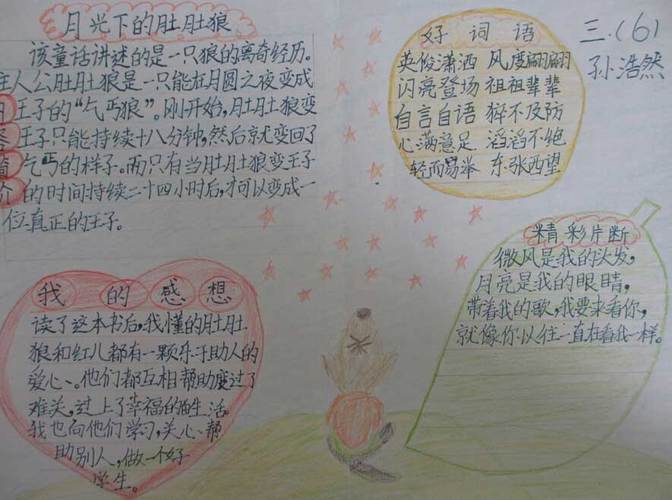 月光下的肚肚狼
该童话讲述的是一只狼的离奇经历。
主人公肚肚狼是一只能在月圆之夜变成
王子的“乞丐狼”。刚开始,肚肚狼变
王子只能持续十八分钟,然后就变回了
乞丐的样子。而只有当肚肚狼变王子
的时间持续二十四小时后,才可以变成一
位真正的王子。
内容简介
好词语
英俊潇洒 风度翩翩
闪亮登场 祖祖辈辈
自言自语 猝不及防
心满意足 滔滔不绝
轻而易举 东张西望
三.(6)
孙浩然
我的感想
读了这本书后,我懂的肚肚
狼和红儿都有一颗乐于助人的
爱心。他们都互相帮助度过了
难关,过上了幸福的生活。
我也向他们学习,关心、帮
助别人,做一个好
学生。
精彩片断
微风是我的头发,
月亮是我的眼睛,
带着我的歌,我要来看你,
就像你以往一直在看我一样。